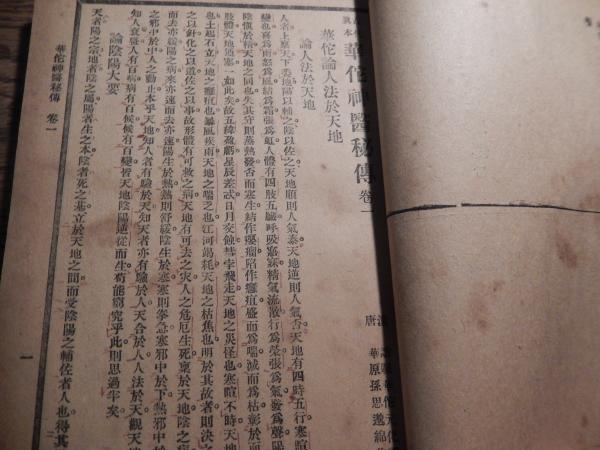 漢
唐 華原孫思邈
眞本
華佗神醫秘傳卷一
華佗論人法於天地
論人法於天地
人者上稟天下委地陽以輔之陰以佐之天地順則人氣泰天地逆則人氣否天地有四時五行寒暄
變也喜爲雨怒爲風結爲霜張爲虹人體有四肢五臟呼吸寤寐精氣流散行爲榮張爲氣發爲聲陽
陰愼於精天地之同也失其守則蒸熱發否而寒生結作癭瘤陷作癰疽盛而爲喘減而爲枯彰於面
肢體天地通塞一如此矣故五緯盈虧星辰差忒日月交蝕彗孛飛走天地之災怪也寒暄不時天地
也土起石立天地之癰疽也暴風疾雨天地之喘乏也江河竭耗天地之枯焦也明於其故者則決之
之以針化之以道佐之以事故形體有可救之病天地有可去之災人之危厄生死稟於天地陰之病
而去亦緩陽之病來亦速而去亦速陽生於熱熱則舒緩陰生於寒寒則拳急寒邪中於下熱邪中於
之邪中於中人之動止本乎天地知人者有驗於天知天者亦有驗於人天合於人人法於天觀天地
知人衰盛人有百病病有百候候有百變皆天地陰陽逆從而生苟能窮究乎此則思過半矣
論陰陽大要
天者陽之宗地者陰之屬陽者生之本陰者死之基立於天地之間而受陰陽之輔佐者人也得其
華佗神醫秘傳 卷一
一